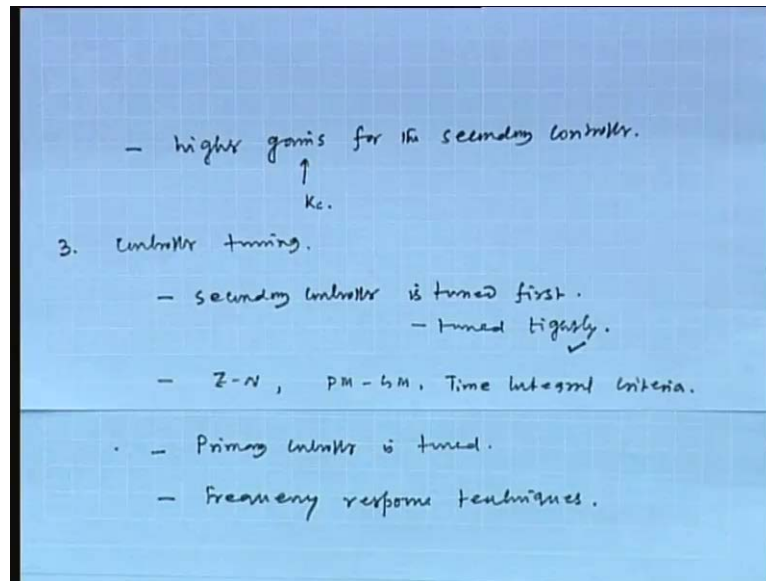 - higher gains for the secondary controller.
↑
Kc.
3. Controller tuning.
- secondary controller is tuned first.
- tuned tightly. ✓
- Z-N, PM-GM, Time Integral Criteria.
- Primary controller is tuned.
- Frequency response techniques.